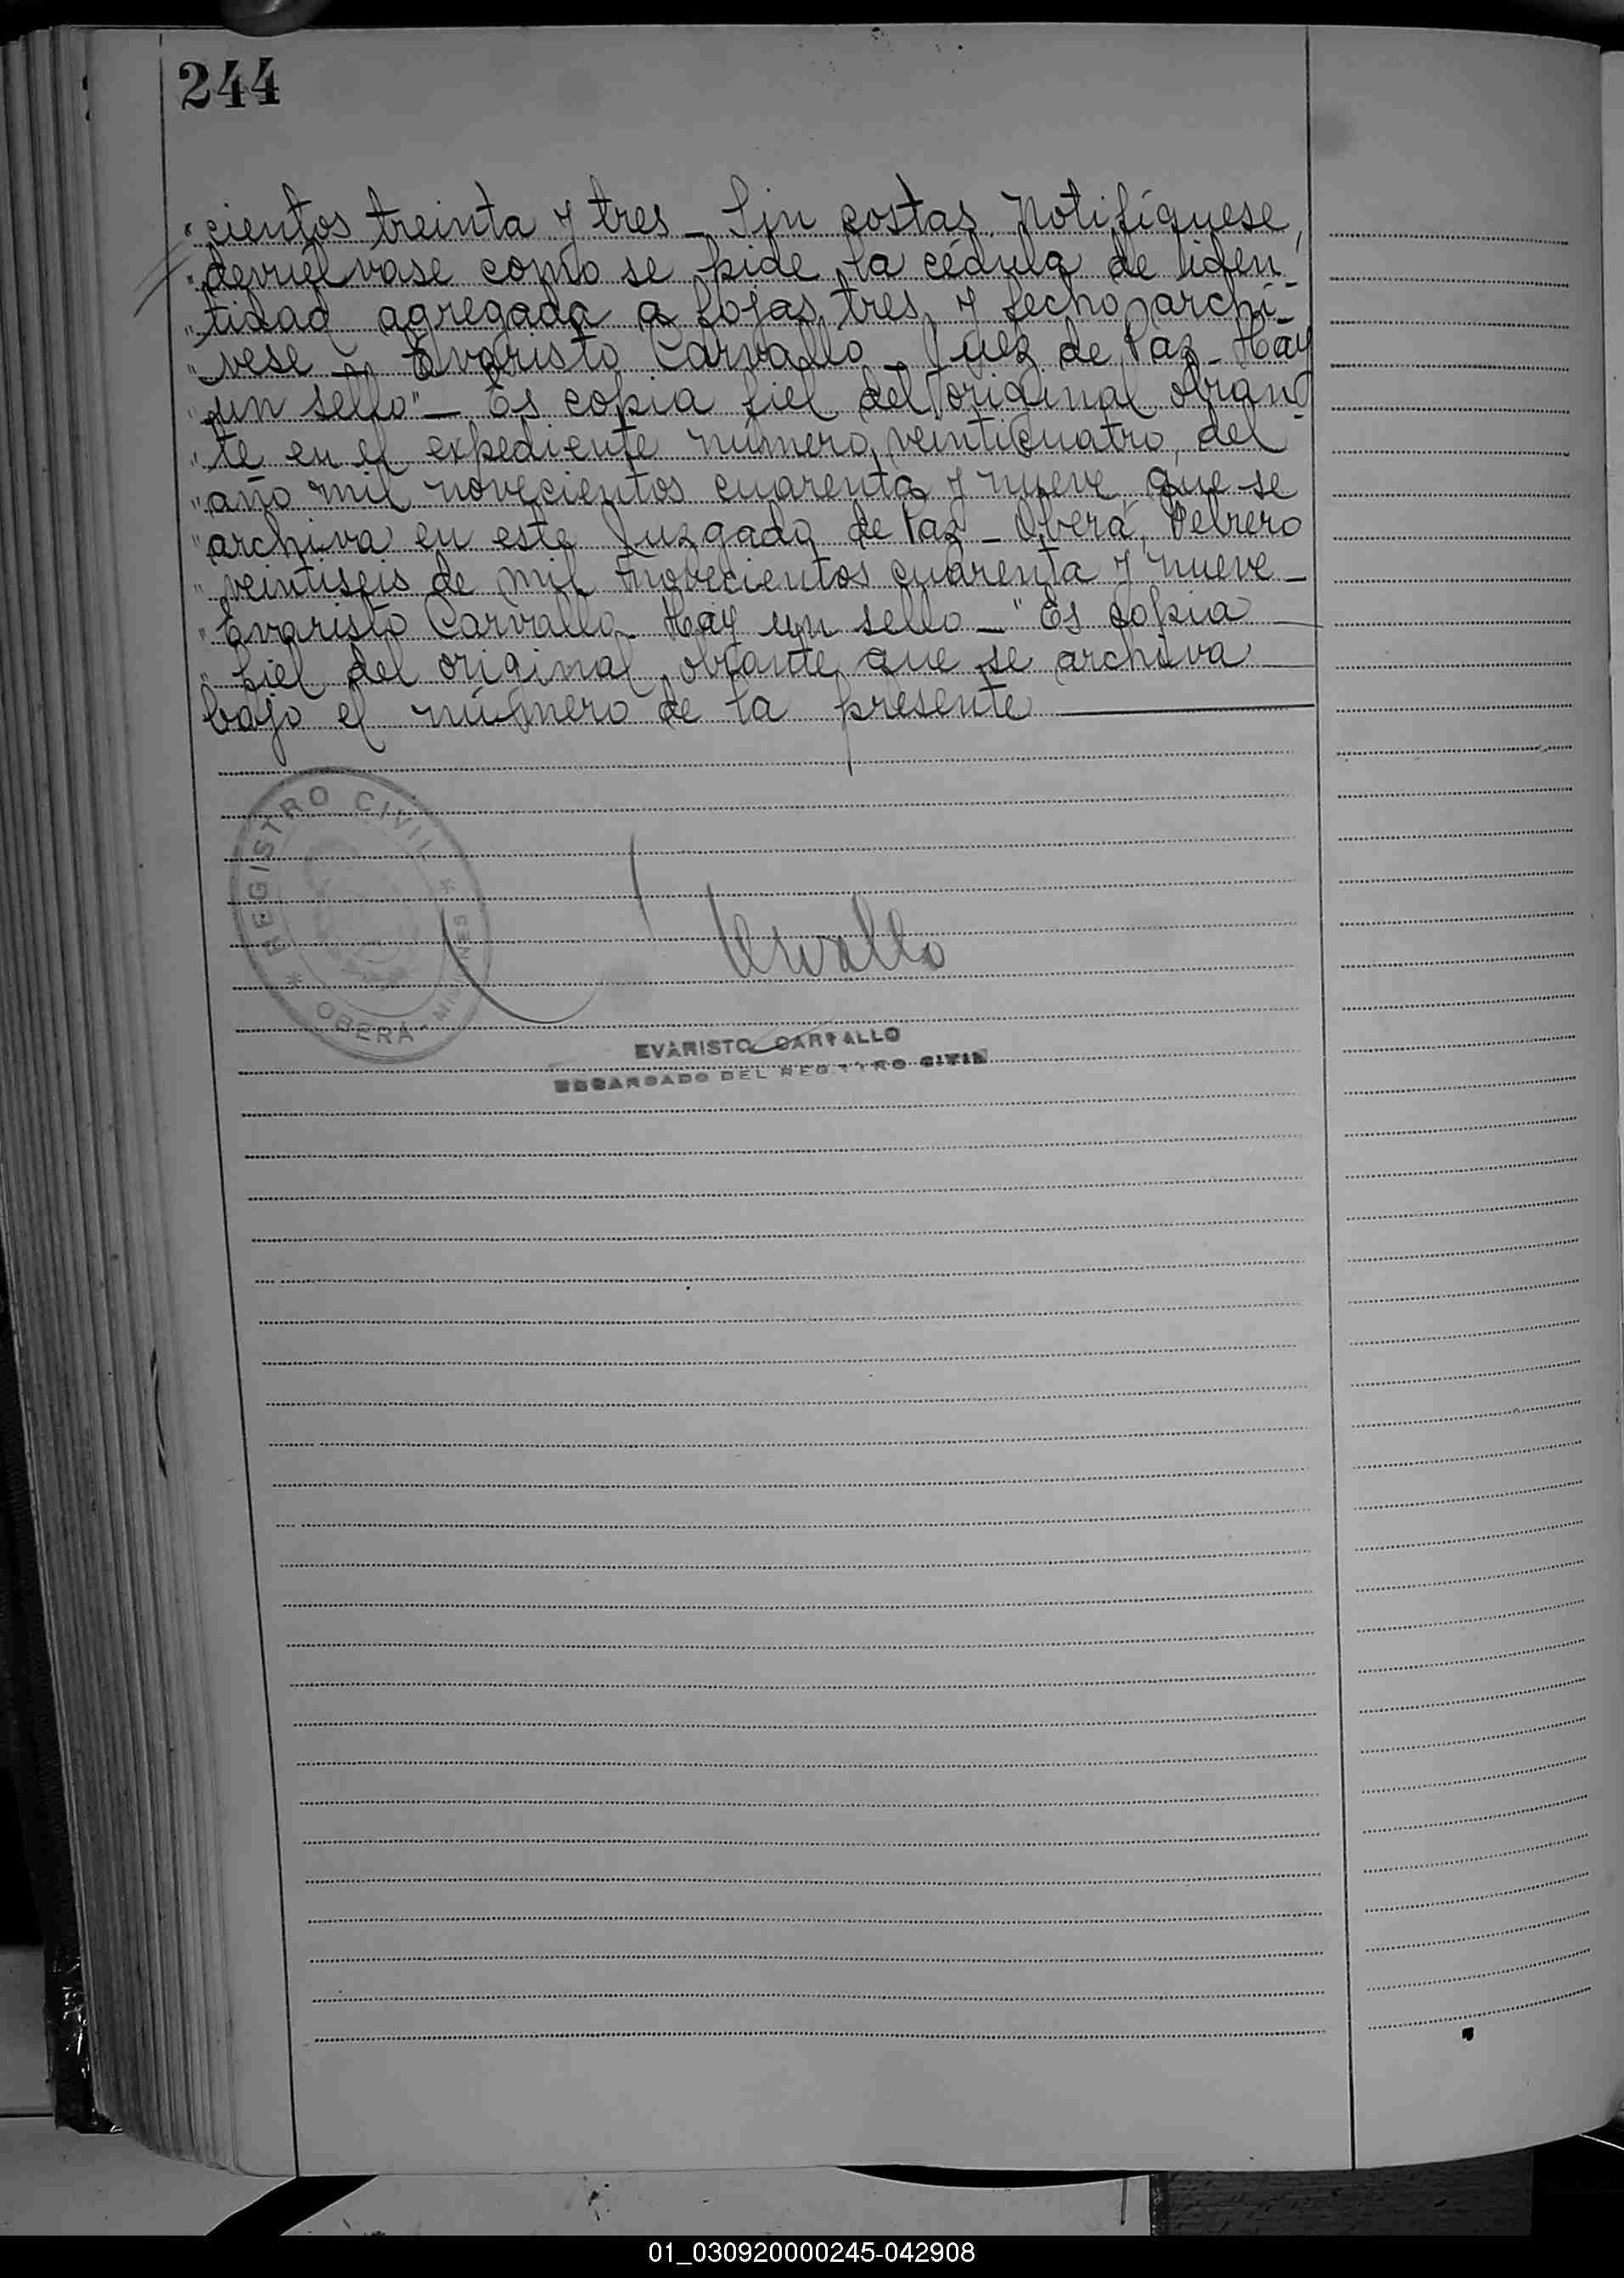 244
"cientos treinta y tres_ Sin costas. Notifíquese,
"devuélvase como se pide la cédula de iden-
"tidad agregada a fojas tres, y fecho archí-
"vese_ Evaristo Carvallo_ Juez de Paz_ Hay
"un sello"_ Es copia fiel del original obran-
"te en el expediente número veinticuatro, del
"año mil novecientos cuarenta y nueve, que se
"archiva en este Juzgado de Paz_ Oberá, Febrero
"veintiseis de mil novecientos cuarenta y nueve_
"Evaristo Carvallo_ Hay un sello_" Es copia
"fiel del original obrante que se archiva
bajo el número de la presente
REGISTRO CIVIL
* OBERÁ - MISIONES *
Carvallo
EVARISTO CARVALLO
ENCARGADO DEL REGISTRO CIVIL
01_030920000245-042908